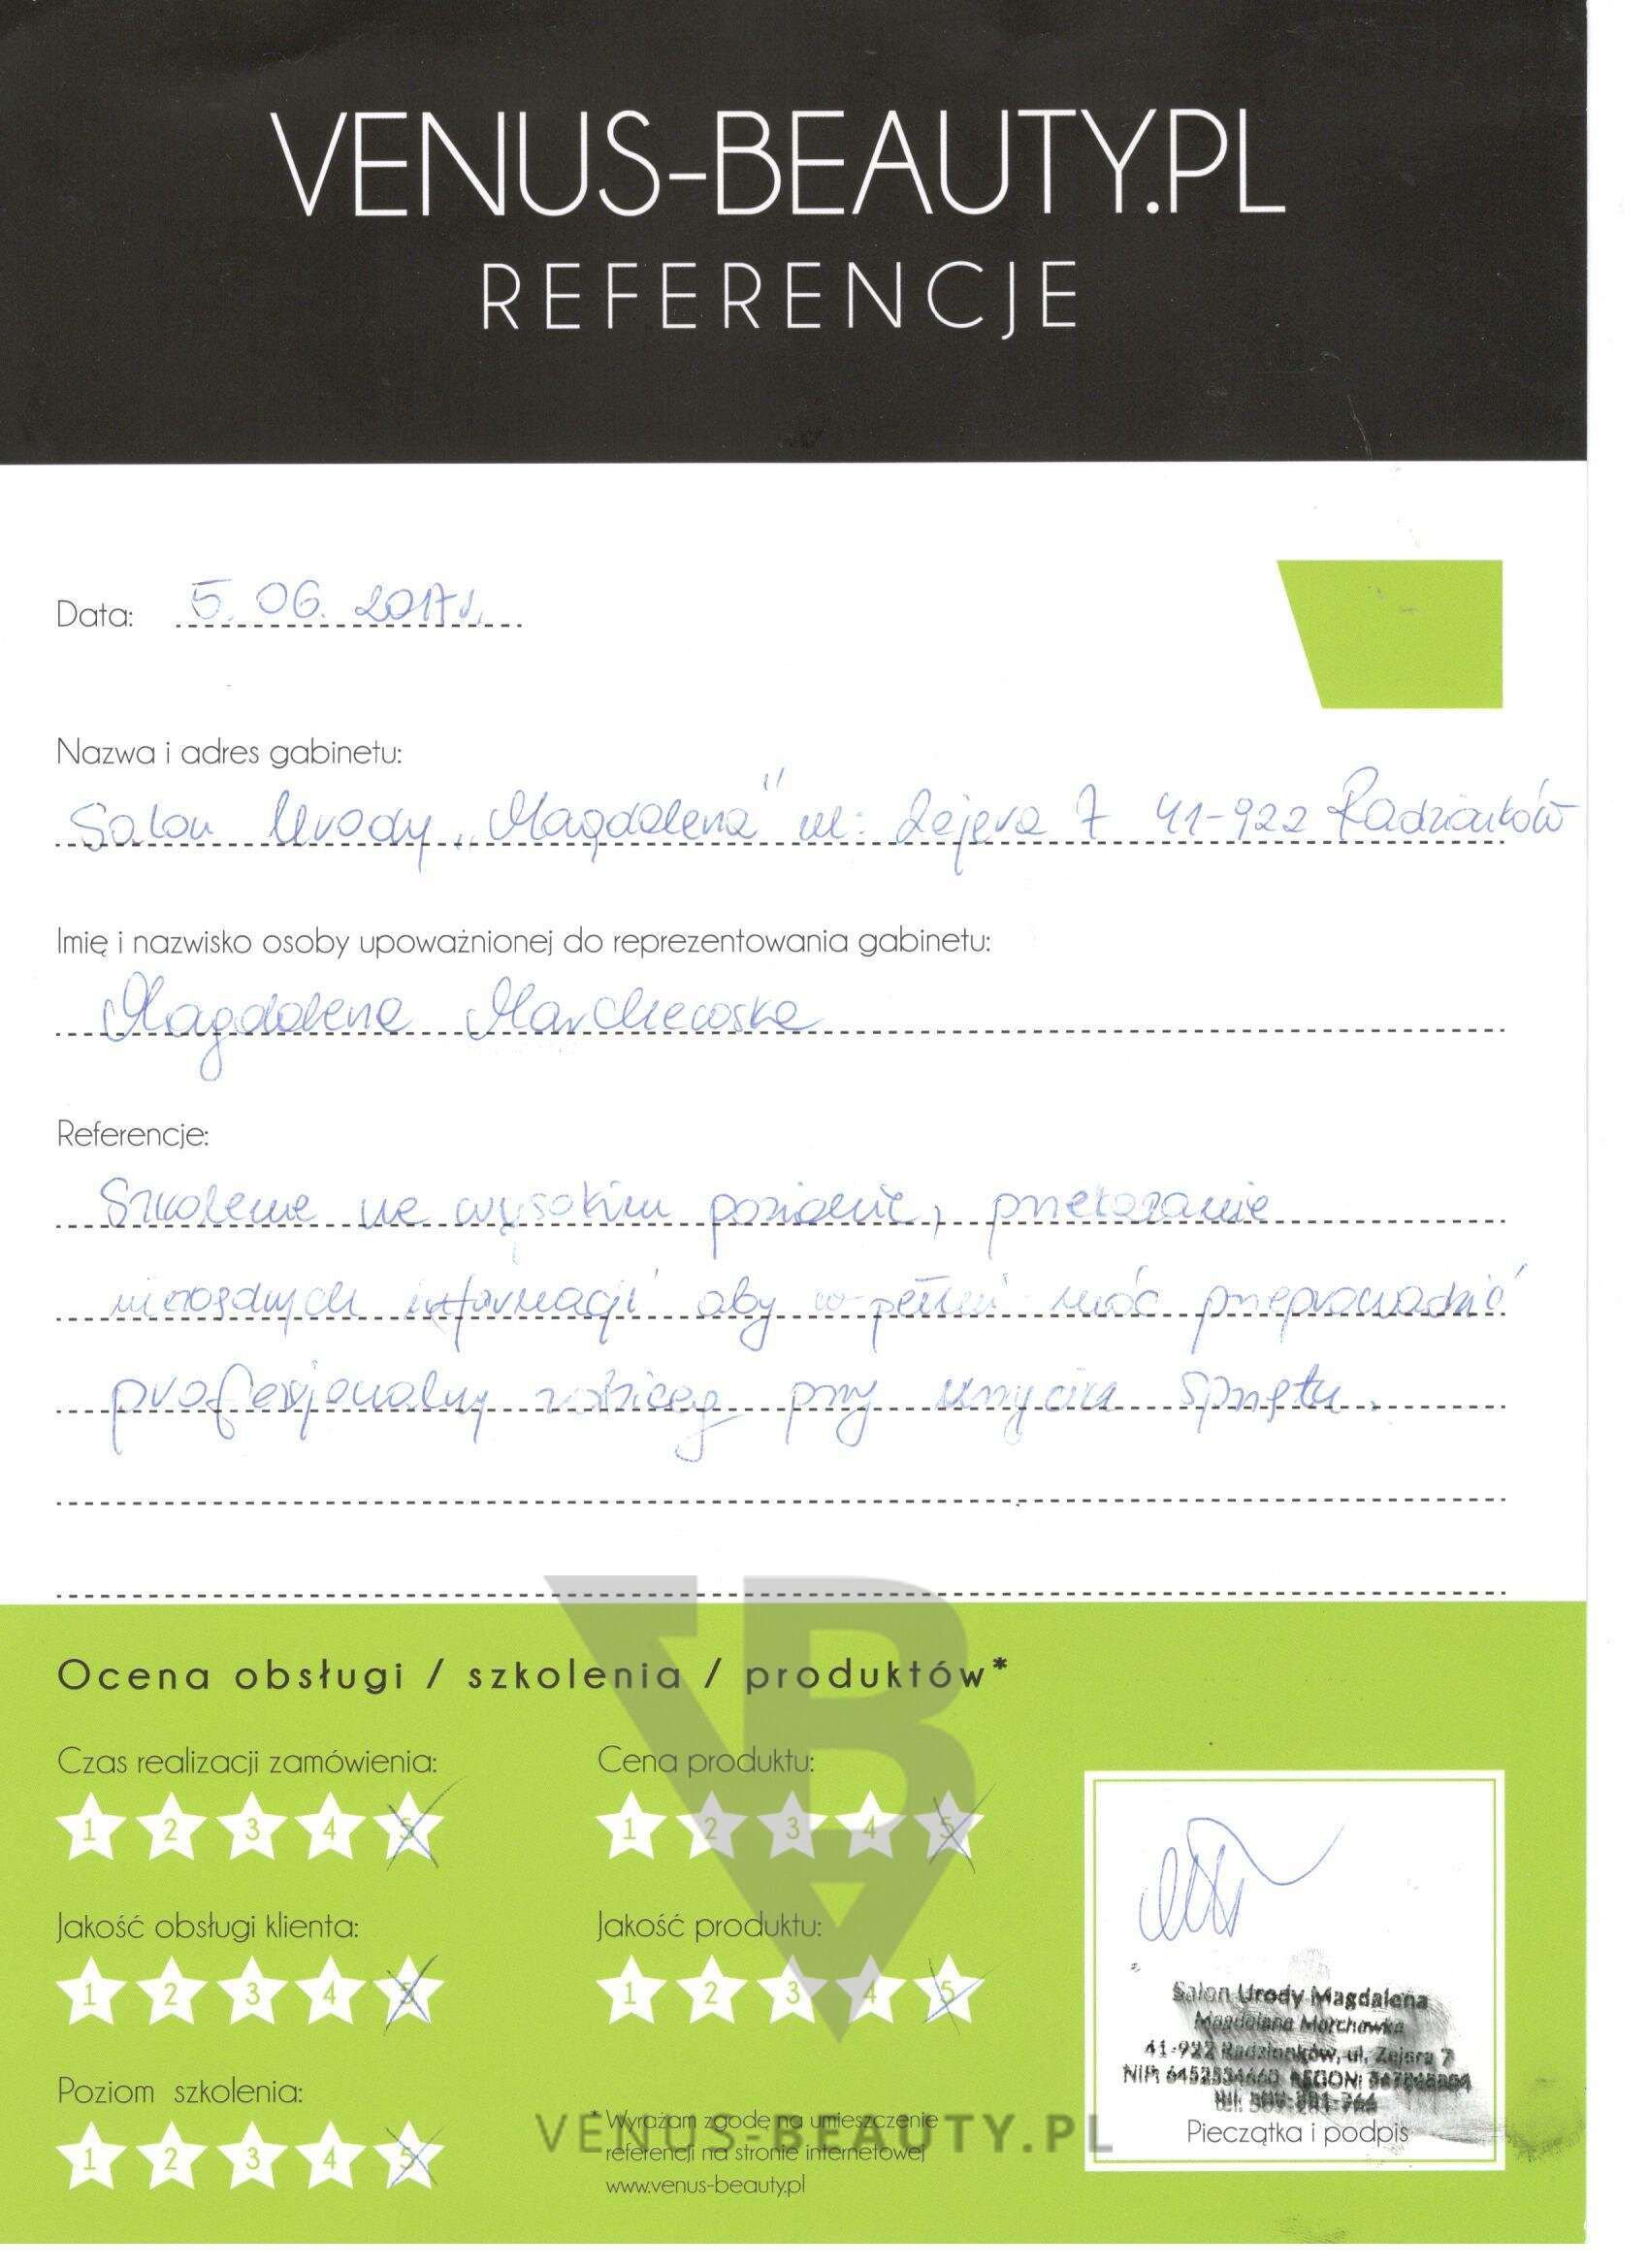 VENUS-BEAUTY.PL
REFERENCJE
Data: 5. 06. 2017r.
Nazwa i adres gabinetu:
Salon Urody „Magdalena" ul: Zejera 7 41-922 Radzionków
Imię i nazwisko osoby upoważnionej do reprezentowania gabinetu:
Magdalena
Referencje:
Szkolenie na wysokim poziomie, przekazanie
niezbędnych informacji aby w pełni móc przeprowadzić
profesjonalny zabieg przy użyciu sprzętu.
Ocena obsługi / szkolenia / produktów*
Czas realizacji zamówienia:
1 2 3 4 5
Cena produktu:
1 2 3 4 5
Jakość obsługi klienta:
1 2 3 4 5
Jakość produktu:
1 2 3 4 5
Poziom szkolenia:
1 2 3 4 5
* Wyrażam zgodę na umieszczenie
referencji na stronie internetowej
www.venus-beauty.pl
VENUS-BEAUTY.PL
Salon Urody Magdalena
Magdalena
41-922 Radzionków, ul. Zejera 7
NIP: REGON:
tel.
Pieczątka i podpis